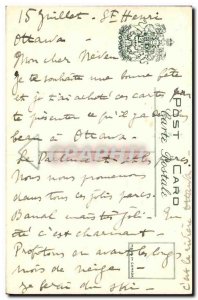 15 Juillet - St Henri
Ottawa -
Mon cher Neveu
Je te souhaite une bonne fête
et je t'ai acheté ces cartes pour
te présenter ce qu'il y a
à Ottawa.
Le Parlement
Nous nous promenons
dans tous les jolis parcs.
Banal mais joli. Un
été c'est charmant -
Profitons en avant les longs
mois de neige
je ferai du ski -
POST CARD
Carte Postale
c'est le